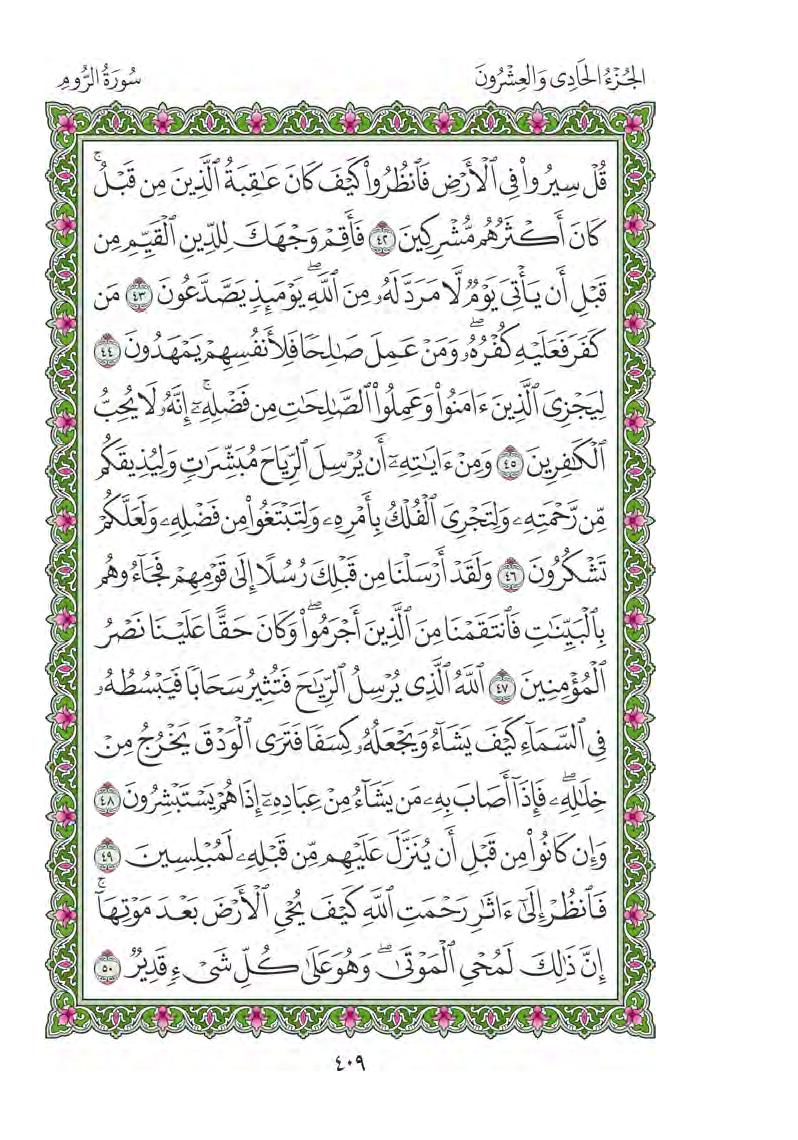 الجُزْءُ الحَادِى وَالعِشْرُونَ
سُورَةُ الرُّومِ
قُلْ سِيرُوا۟ فِى ٱلْأَرْضِ فَٱنظُرُوا۟ كَيْفَ كَانَ عَٰقِبَةُ ٱلَّذِينَ مِن قَبْلُ ۚ
كَانَ أَكْثَرُهُم مُّشْرِكِينَ ٤٢ فَأَقِمْ وَجْهَكَ لِلدِّينِ ٱلْقَيِّمِ مِن
قَبْلِ أَن يَأْتِىَ يَوْمٌ لَّا مَرَدَّ لَهُۥ مِنَ ٱللَّهِ ۖ يَوْمَئِذٍ يَصَّدَّعُونَ ٤٣ مَن
كَفَرَ فَعَلَيْهِ كُفْرُهُۥ ۖ وَمَنْ عَمِلَ صَٰلِحًا فَلِأَنفُسِهِمْ يَمْهَدُونَ ٤٤
لِيَجْزِىَ ٱلَّذِينَ ءَامَنُوا۟ وَعَمِلُوا۟ ٱلصَّٰلِحَٰتِ مِن فَضْلِهِۦٓ ۚ إِنَّهُۥ لَا يُحِبُّ
ٱلْكَٰفِرِينَ ٤٥ وَمِنْ ءَايَٰتِهِۦٓ أَن يُرْسِلَ ٱلرِّيَاحَ مُبَشِّرَٰتٍ وَلِيُذِيقَكُم
مِّن رَّحْمَتِهِۦ وَلِتَجْرِىَ ٱلْفُلْكُ بِأَمْرِهِۦ وَلِتَبْتَغُوا۟ مِن فَضْلِهِۦ وَلَعَلَّكُمْ
تَشْكُرُونَ ٤٦ وَلَقَدْ أَرْسَلْنَا مِن قَبْلِكَ رُسُلًا إِلَىٰ قَوْمِهِمْ فَجَآءُوهُم
بِٱلْبَيِّنَٰتِ فَٱنتَقَمْنَا مِنَ ٱلَّذِينَ أَجْرَمُوا۟ ۖ وَكَانَ حَقًّا عَلَيْنَا نَصْرُ
ٱلْمُؤْمِنِينَ ٤٧ ٱللَّهُ ٱلَّذِى يُرْسِلُ ٱلرِّيَٰحَ فَتُثِيرُ سَحَابًا فَيَبْسُطُهُۥ
فِى ٱلسَّمَآءِ كَيْفَ يَشَآءُ وَيَجْعَلُهُۥ كِسَفًا فَتَرَى ٱلْوَدْقَ يَخْرُجُ مِنْ
خِلَٰلِهِۦ ۖ فَإِذَآ أَصَابَ بِهِۦ مَن يَشَآءُ مِنْ عِبَادِهِۦٓ إِذَا هُمْ يَسْتَبْشِرُونَ ٤٨
وَإِن كَانُوا۟ مِن قَبْلِ أَن يُنَزَّلَ عَلَيْهِم مِّن قَبْلِهِۦ لَمُبْلِسِينَ ٤٩
فَٱنظُرْ إِلَىٰٓ ءَاثَٰرِ رَحْمَتِ ٱللَّهِ كَيْفَ يُحْىِ ٱلْأَرْضَ بَعْدَ مَوْتِهَآ ۚ
إِنَّ ذَٰلِكَ لَمُحْىِ ٱلْمَوْتَىٰ ۖ وَهُوَ عَلَىٰ كُلِّ شَىْءٍ قَدِيرٌ ٥٠
٤٠٩